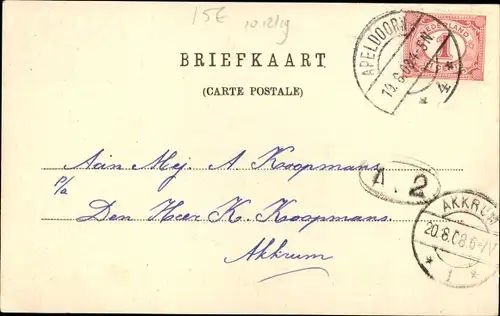 15E
10.12/19
NEDERLAND
APELDOORN
4-8N
* 4 *
BRIEFKAART
(CARTE POSTALE)
Aan Mej. A Koopmans.
p/a
A. 2
Den Heer K. Koopmans.
Akkrum
AKKRUM
20.8.08.6-7V
* 1 *